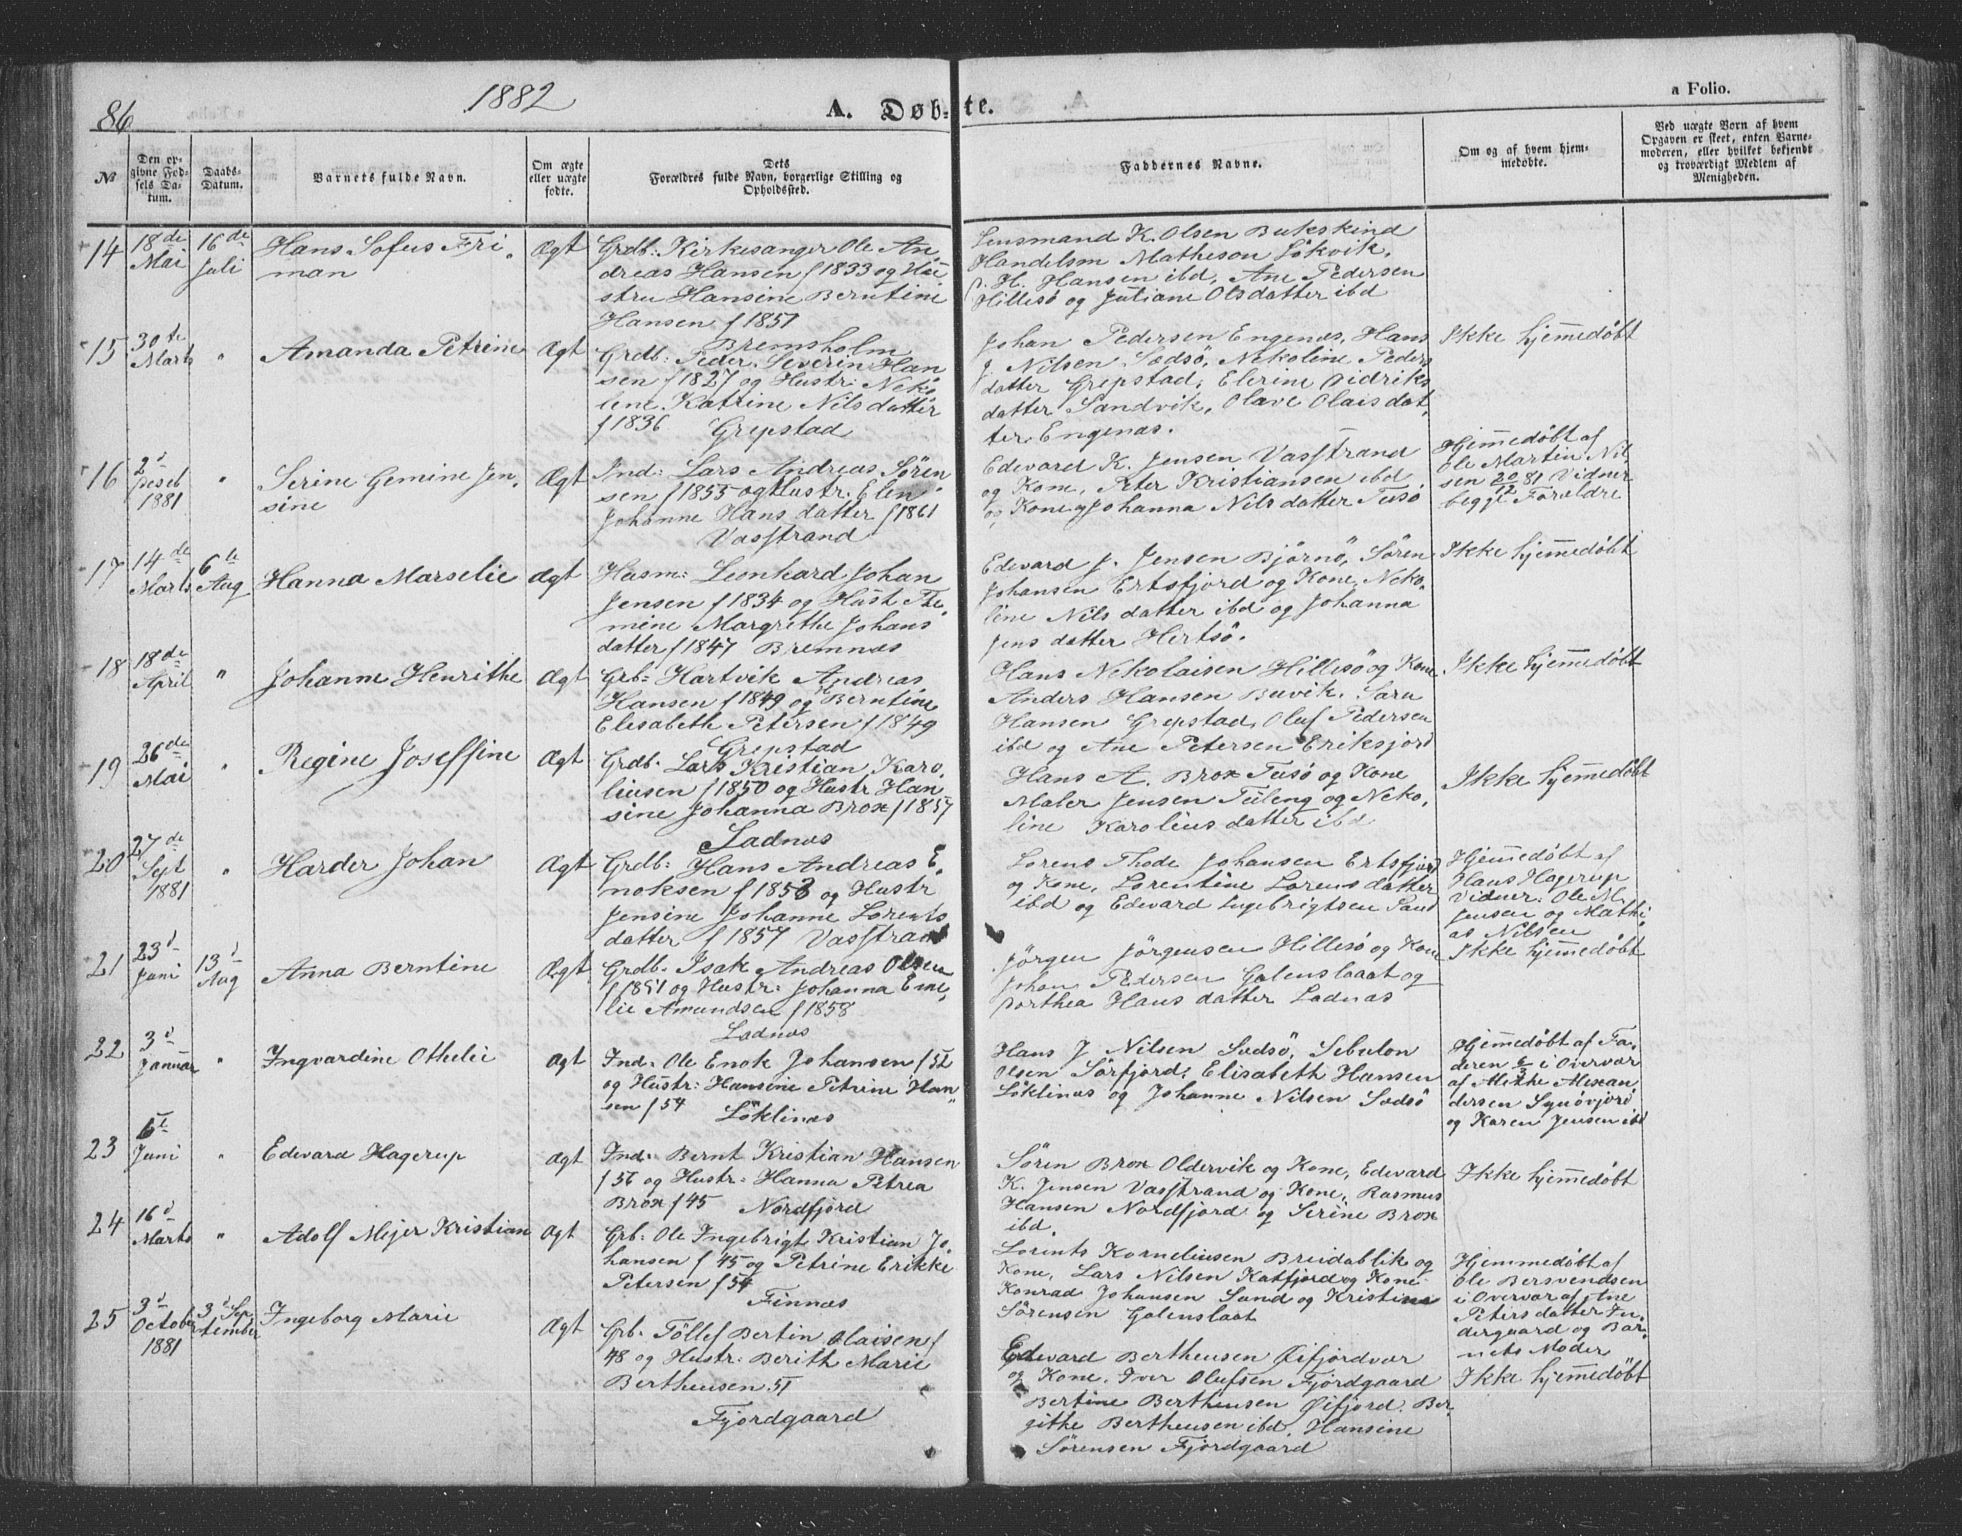 86
1882
A. Døb-te.
a Folio.
№
Den op-
givne Fød-
sels Da-
tum.
Daabs-
Datum.
Barnets fulde Navn.
Om ægte
eller uægte
fødte.
Dets
Forældres fulde Navn, borgerlige Stilling og
Opholdssted.
Faddernes Navne.
Om og af hvem hjem-
medøbte.
Ved uægte Børn af hvem
Opgaven er skeet, enten Barne-
moderen, eller hvilket bekjendt
og troværdigt Medlem af
Menigheden.
14
18de
Mai
16de
Juli
Hans Sofus Fri-
man
Ægt
Grdb: Kirkesanger Ole An-
dreas Hansen f 1833 og Hu-
stru Hansine Berntine
Hansen f 1851
Bremsholm
Lensmand K. Olsen Bukskind
Handelsm Matheson Lökvik,
H. Hansen ibd, Ane Pedersen
Hillesö og Juliane Olsdatter ibd
15
30te
Marts
"
Amanda Petrine
Ægt
Grdb: Peder Severin Han
sen f 1827 og Hustr: Neko
line Katrine Nilsdatter
f 1836 Grepstad
Johan Pedersen Engenæs, Hans
J Nilsen Sodsö, Nekoline Peders
datter Grepstad, Elerine Didriks
datter Sandvik, Olave Olaisdat,
ter Engenæs.
Ikke hjemmedöbt
16
2d
Deseb
1881
"
Serine Gemine Jen-
sine
Ægt
Ind: Lars Andreas Sören
sen f 1855 og Hustr: Elen
Johanne Hans datter f 1861
Vasstrand
Edevard K. Jensen Vasstrand
og Kone, Peter Kristiansen ibd
og Kone og Johanna Nils datter Tusö
Hjemmedöbt af
Ole Martin Nil
sen 20/12 81 Vidner
begge Foreldre
17
14de
Marts
6te
Aug
Hanna Marselie
Ægt
Husm: Leonhard Johan
Jensen f 1834 og Hust The
mine Margrethe Johans
datter f 1847 Bremnæs
Edevard J. Jensen Björnö, Sören
Johansen Ertsfjord og Kone, Neko,
line Nils datter ibd og Johanna
Jens datter Hertsö.
Ikke hjemmedöbt
18
18de
April
"
Johanne Henrithe
Ægt
Grb: Hartvik Andreas
Hansen f 1849 og Berntine
Elisabeth Petersen f 1849
Grepstad
Hans Nekolaisen Hillesö og Kone
Anders Hansen Buvik. Sara
Hansen Grepstad, Oluf Pedersen
ibd og Ane Petersen Eriksjord
Ikke hjemmedöbt
19
26de
Mai
"
Regine Joseffine
Ægt
Grdb: Lars Kristian Karo,
liusen f 1850 og Hustr Han
sine Johanna Brox f 1857
Ladnæs
Hans A. Brox Tusö og Kone
Maler Jensen Tuleng og Neko,
line Karolius datter ibd
Ikke hjemmedöbt
20
27de
Sept
1881
"
Harder Johan
Ægt
Grdb: Hans Andreas E.
noksen f 1853 og Hustr
Jensine Johanne Lorents
datter f 1857 Vasstrand
Lorens Thode Johansen Ertsfjord
og Kone, Lorentine Lorens datter
ibd og Edevard Ingebrigtsen Sand
Hjemmedöbt af
Hans Hagerup
Vidner: Ole M.
Jensen og Mathi
as Nilsen
21
23d
Juni
13d
Aug
Anna Berntine
Ægt
Grdb: Isak Andreas Olsen
f 1851 og Hustr: Johanna Eme,
lie Amundsen f 1858
Ladnæs
Jörgen Jörgensen Hillesö og Kone
Johan Pedersen Galenslaaat og
Dorthea Hans datter Ladnæs
Ikke hjemmedöbt
22
3d
Januar
"
Ingvardine Othelie
Ægt
Ind: Ole Enok Johansen f 52
og Hustr: Hansine Petrine Han
sen f 54 Löklinæs
Hans J Nilsen Sodsö, Sebulon
Olsen Sörfjord, Elisabeth Hansen
Löklinæs og Johanne Nilsen Sodsö
Hjemmedöbt af Fa,
deren 6/3 i Overvær
af Mekke Alexan,
dersen
og Karen Jensen ibd
23
6te
Juni
"
Edevard Hagerup
Ægt
Ind: Bernt Kristian Hansen
f 56 og Hustr: Hanna Petrea
Brox f 45 Nordfjord
Sören Brox Oldervik og Kone, Edevard
K. Jensen Vasstrand og Kone, Rasmus
Hansen Nordfjord og Serine Brox
ibd.
Ikke hjemmedöbt
24
16d
Marts
"
Adolf Mejer Kristian
Ægt
Grb: Ole Ingebrigt Kristian Jo,
hansen f 45 og Petrine Erikke
Petersen f 54
Finnæs
Lorints Korneliusen Breidablik og
Kone, Lars Nilsen Katfjord og Kone
Konrad Johansen Sand og Kristine
Sörensen Galenslaat
Hjemmedöbt af
Ole Bersvendsen
i Overvær af Ane
Peters datter In,
dergaard og Bar,
nets Moder
25
3d
October
1881
3d Sep
tember
Ingeborg Marie
Ægt
Grb: Töllef Bertin Olaisen f
48 og Hustr: Berith Marie
Bertheusen 51
Fjordgaard
Edevard Bertheusen Öifjordvær
og Kone, Iver Olufsen Fjordgaard
Bertine Bertheusen Öifjord, Ber,
githe Bertheusen ibd, Hansine
Sörensen Fjordgaard
Ikke hjemmedöbt